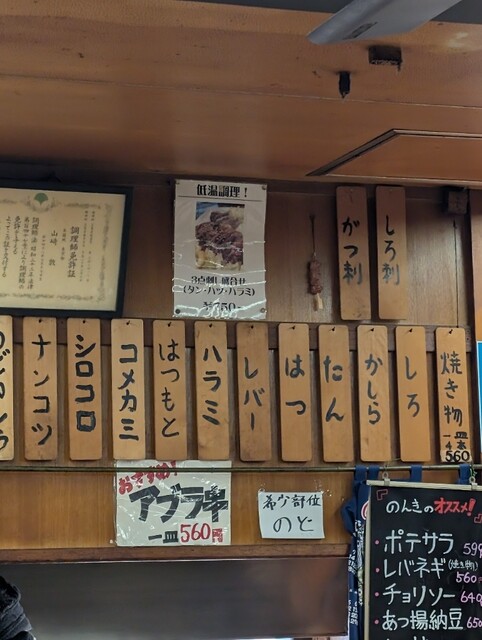 調理師免許証
山崎
低温調理!
3点刺し盛合せ
(タン・ハツ・ハラミ)
がつ刺
しろ刺
焼き物 一皿 560
しろ
かしら
たん
はつ
レバー
ハラミ
はつもと
コメカミ
シロコロ
ナンコツ
おすすめ!
アブラ串
一皿560円
希少部位
のど
のんきのオススメ!
・ポテサラ 599
・レバネギ(焼き物) 560円
・チョリソー 640
・あつ揚納豆 650